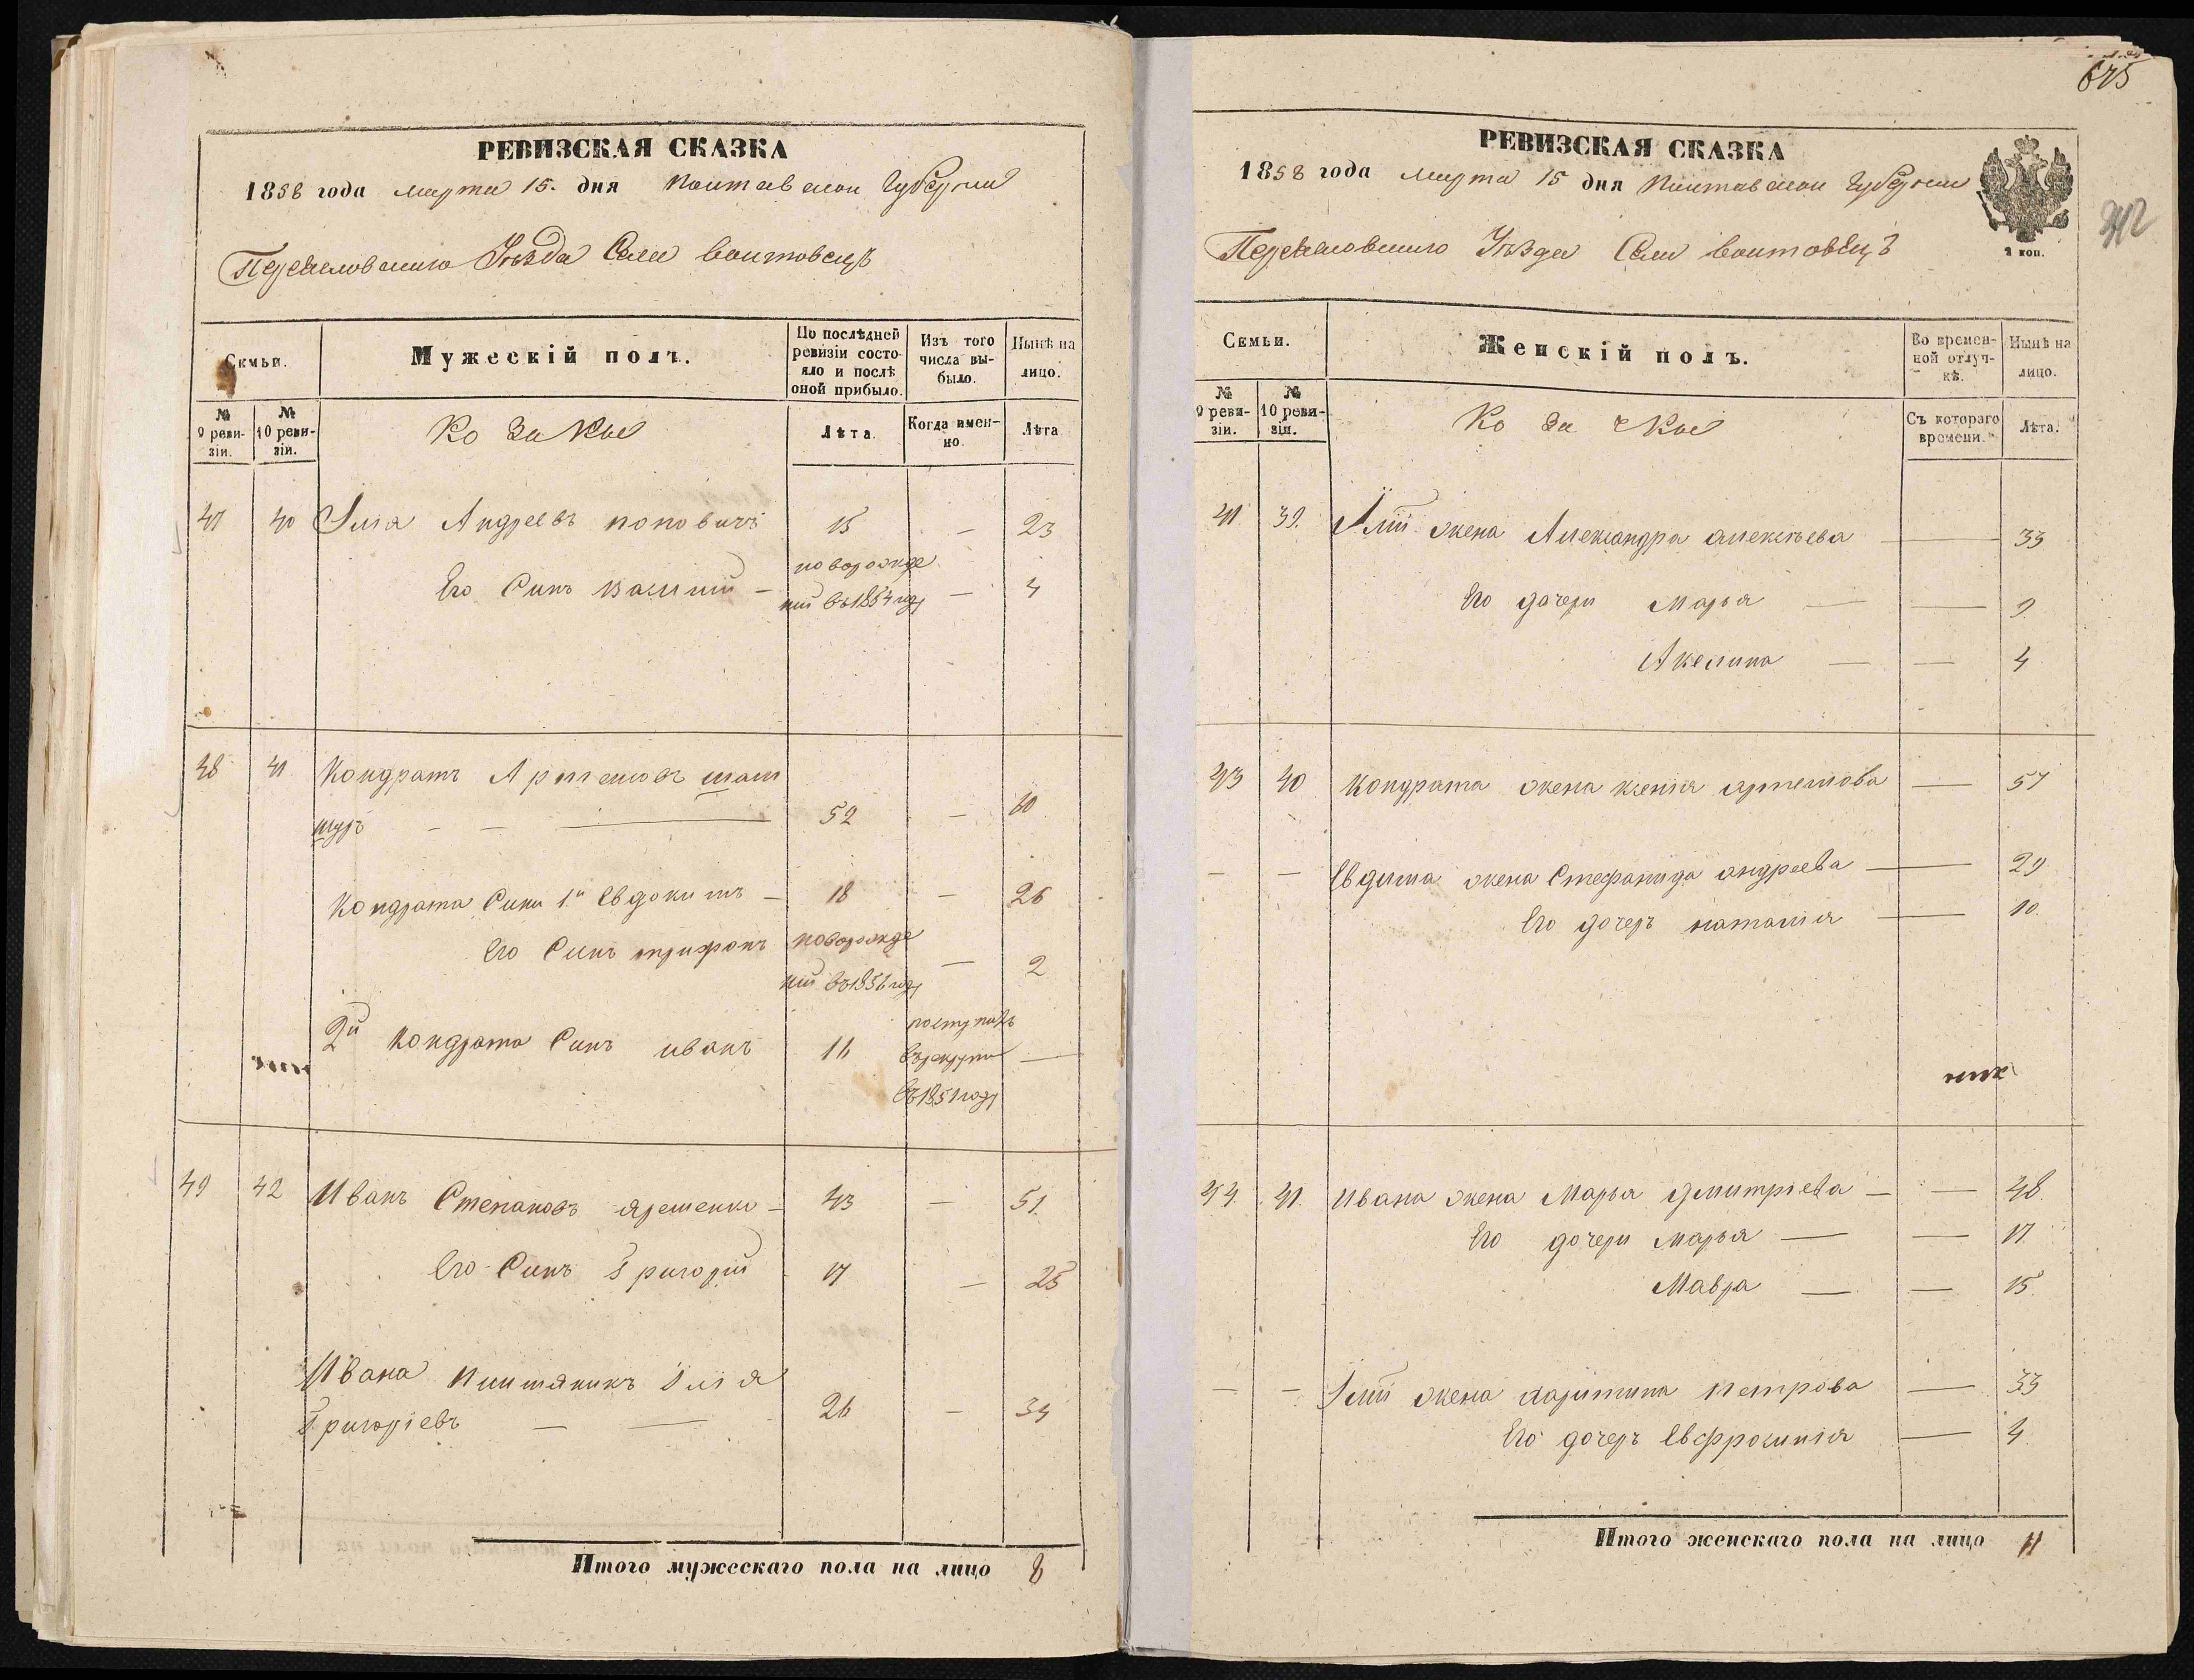 РЕВИЗСКАЯ СКАЗКА
1858 года марта 15. дня Полтавской Губернии
Переяславского Уѣзда Села Воитовецъ
Семьи.
Мужескій полъ.
По послѣдней ревизіи состояло и послѣ оной прибыло.
Изъ того числа выбыло.
Нынѣ на лицо.
№ 9 ревизіи.
№ 10 ревизіи.
Козаки
Лѣта.
Когда именно.
Лѣта
47 40 Илія Андреевъ поповичъ 15 — 23
Его Синъ Василий — новорожде
ний въ 1854 году — 4
48 41 Кондратъ Артемовъ шап
шуръ — — — 52 — 60
Кондрата Сини 1й Евдокимъ — 18 — 26
Его Синъ трифонъ новорожде
ний въ 1856 году — 2
2й Кондрата Синъ иванъ 16 поступилъ
въ рекруты —
въ 1851 году
49 42 Иванъ Степановъ ярешенко — 43 — 51.
Его Синъ Григорий 17 — 25
Ивана Илія
Григоріевъ — — 26 — 34
Итого мужескаго пола на лицо 8
675
342
РЕВИЗСКАЯ СКАЗКА
1858 года марта 15 дня Полтавской Губернии
2 коп.
Переяславского Уѣзда Села Воитовецъ
Семьи.
Женскій полъ.
Во временной отлучкѣ.
Нынѣ на лицо.
№ 9 ревизіи.
№ 10 ревизіи.
Козачки
Съ котораго времени.
Лѣта.
41. 39. Иліи жена Александра алексѣева — 33
Его дочери Марья — — 9.
Акелина — — 4
43 40 Кондрата жена ксенія артемова — 57
— — Евдима жена Стефанида андреева — 29
Его дочеръ наталія — 10.
44. 41. Ивана жена Марья дмитріева — — 48.
Его дочери Марья — — 17
Мавра — — 15.
— — Иліи жена харитина петрова — 33
Его дочеръ Евфросинія — 4.
Итого женскаго пола на лицо 11